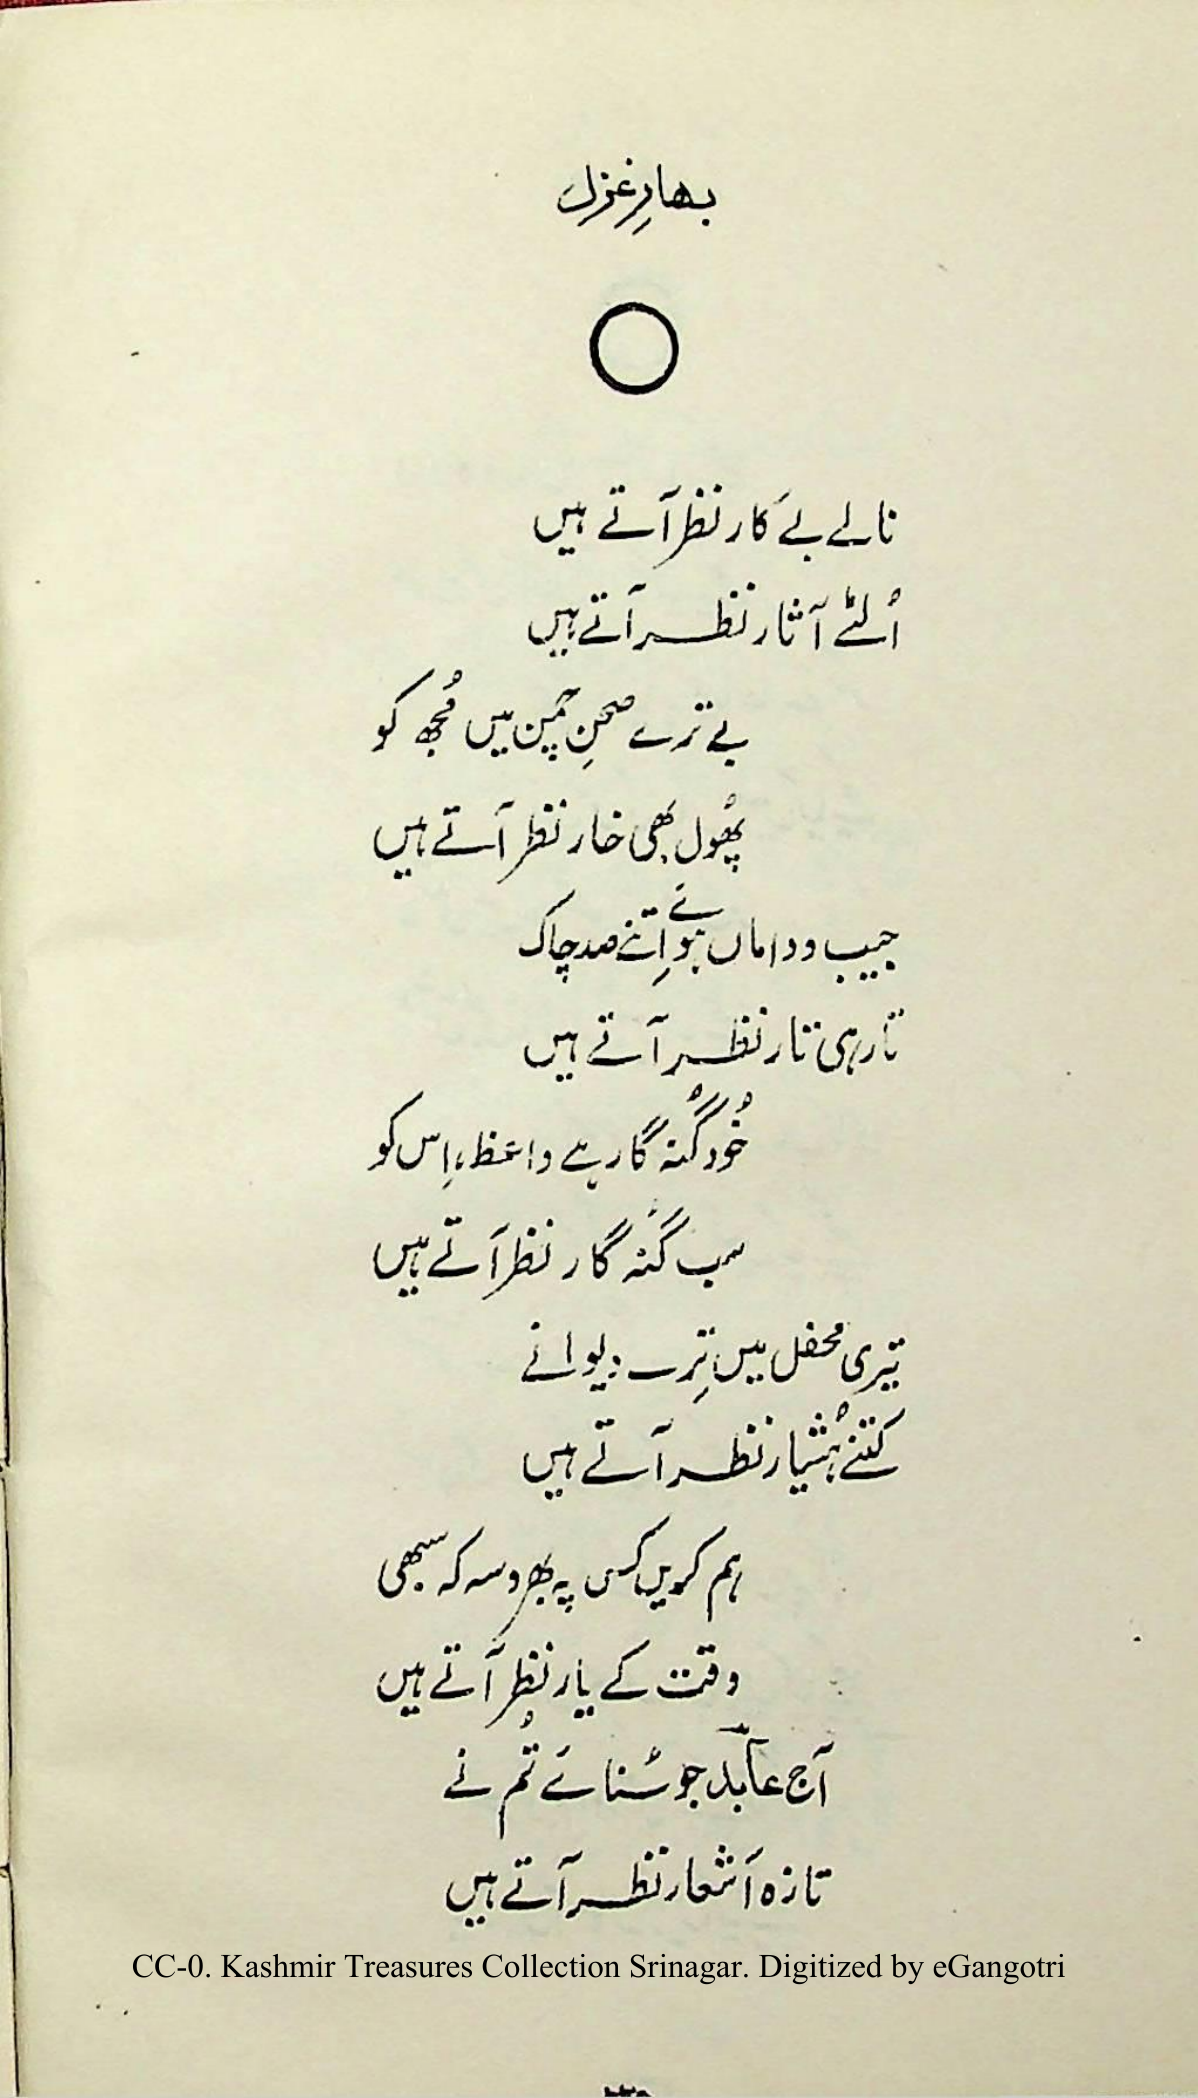 بہارِ غزل
نالے بے کار نظر آتے ہیں
اُلٹے آثار نظر آتے ہیں
بے ترے صحنِ چمن میں مُجھ کو
پھُول بھی خار نظر آتے ہیں
جیب و داماں ہوئے اِتنے صد چاک
تار ہی تار نظر آتے ہیں
خُود گُنہ گار ہے واعظ، اِس کو
سب گُنہ گار نظر آتے ہیں
تیری محفل میں تِرے دیوانے
کتنے ہُشیار نظر آتے ہیں
ہم کریں کس پہ بھروسہ کہ سبھی
وقت کے یار نظر آتے ہیں
آج عابد جو سُنائے تُم نے
تازہ اَشعار نظر آتے ہیں
CC-0. Kashmir Treasures Collection Srinagar. Digitized by eGangotri